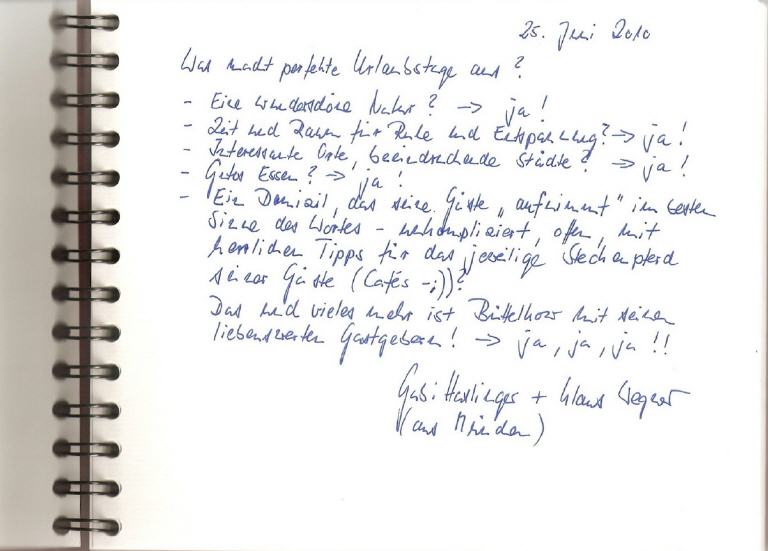 25. Juni 2010
Was macht perfekte Urlaubstage aus?
- Eine wunderschöne Natur? → ja!
- Zeit und Raum für Ruhe und Entspannung? → ja!
- Interessante Orte, beeindruckende Städte? → ja!
- Gutes Essen? → ja!
- Ein Domizil, das seine Gäste „aufnimmt" im besten
Sinne des Wortes - unkompliziert, offen, mit
herrlichen Tipps für das jeweilige Steckenpferd
seiner Gäste (Cafés -;))?
Das und vieles mehr ist mit seinen
liebenswerten Gastgebern! → ja, ja, ja!!
Gabi + Klaus Wegner
(aus)